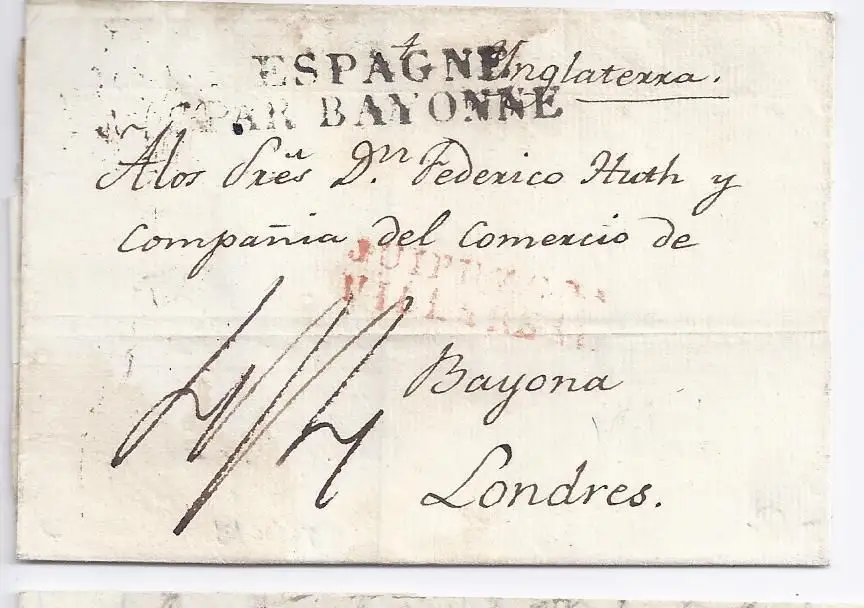 ESPAGNE
Ynglaterra.
PAR BAYONNE
A los Sres. Dn. Federico Huth y
Compañia del Comercio de
GUIPUZCOA
VILLAREAL
Bayona
Londres.